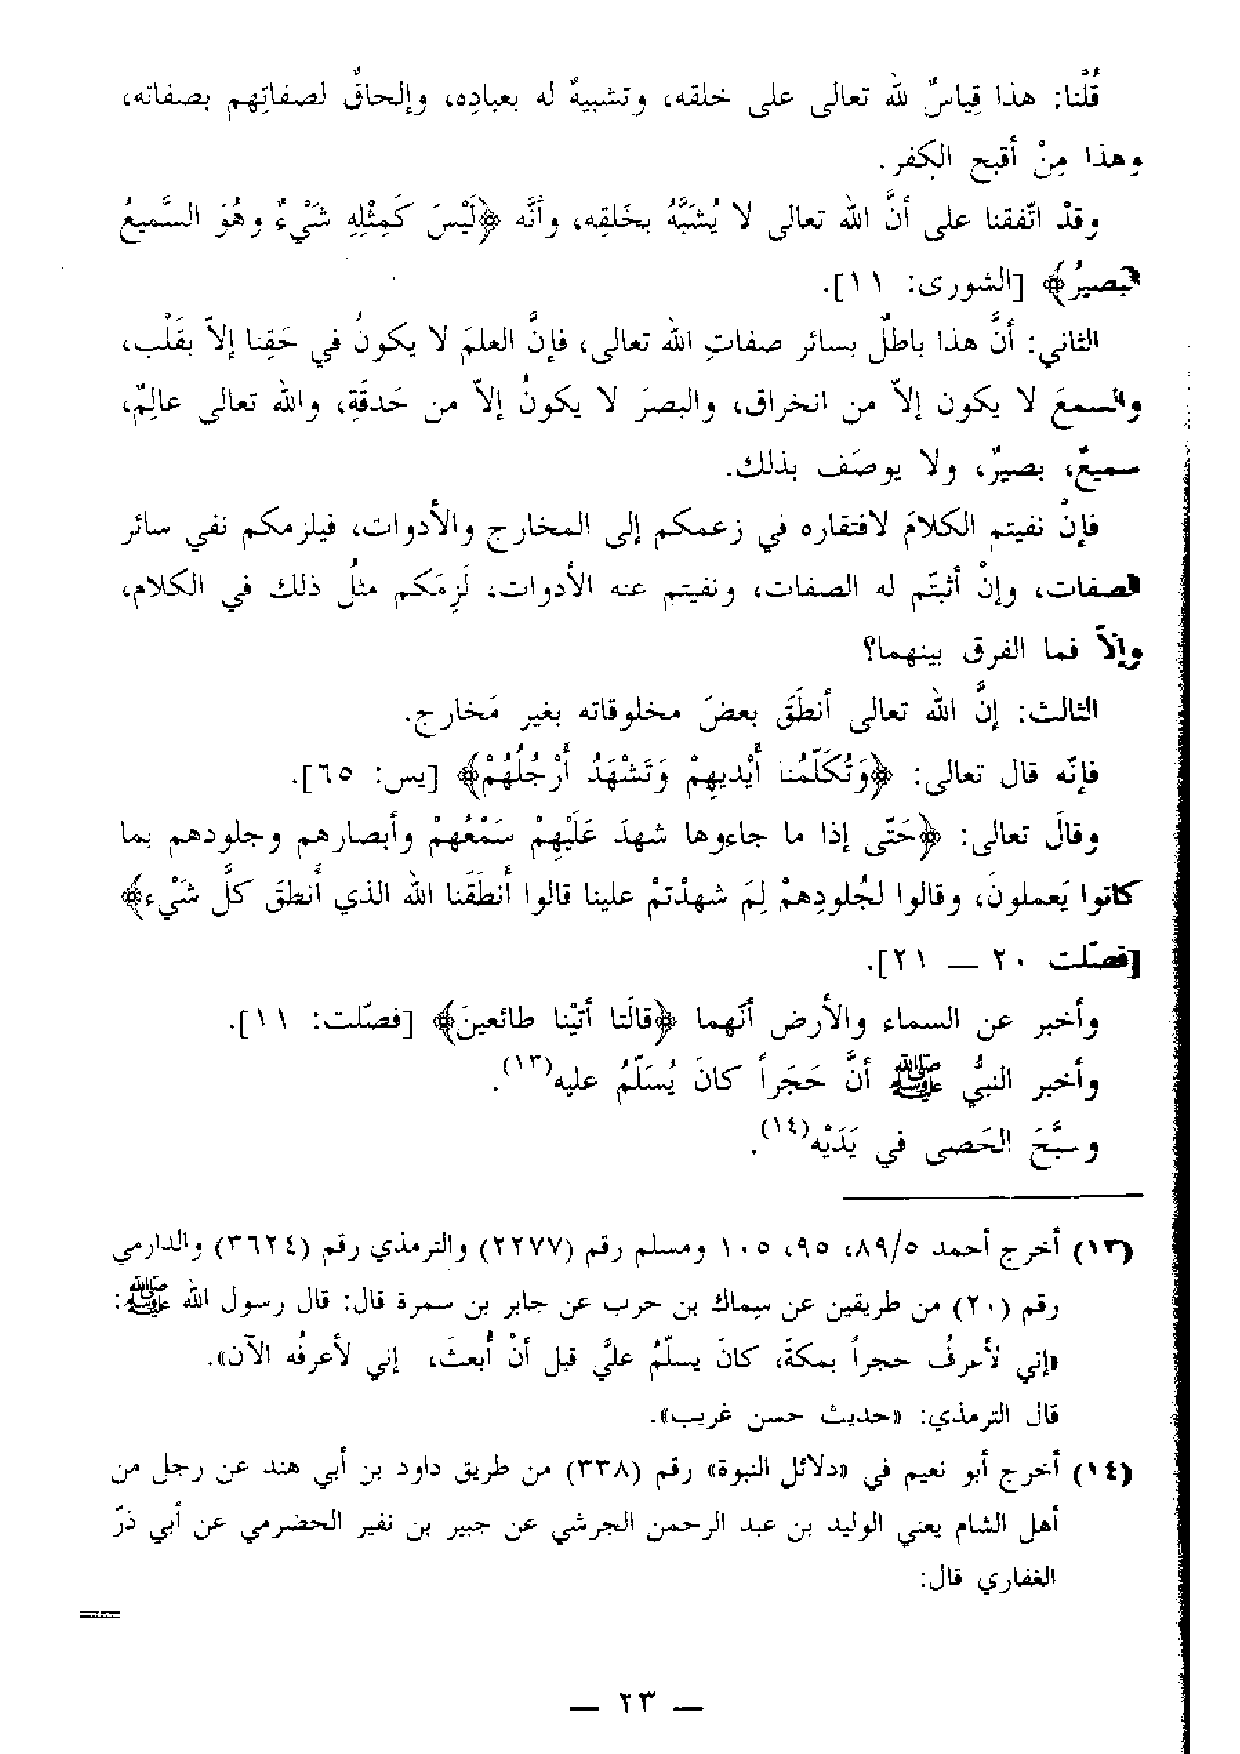 قُلْنا: هذا قِياسٌ لله تعالى على خلقه، وتشبيهٌ له بعبادِه، وإلحاقٌ لصفاتِهم بصفاته،
وهذا مِنْ أقبح الكفر.
وقدْ اتّفقنا على أنَّ الله تعالى لا يُشَبَّهُ بخَلقِه، وأنَّه ﴿لَيْسَ كَمِثْلِهِ شَيْءٌ وهُوَ السَّميعُ
البَصيرُ﴾ [الشورى: ١١].
الثاني: أنَّ هذا باطلٌ بسائر صفاتِ الله تعالى، فإنَّ العلمَ لا يكونُ في حَقِنا إلاّ بقَلْب،
والسمعَ لا يكون إلاّ من انخراق، والبصرَ لا يكونُ إلاّ من حَدقَةٍ، والله تعالى عالِمٌ،
سميعٌ، بصيرٌ، ولا يوصَف بذلك.
فإنْ نفيتم الكلامَ لافتقاره في زعمكم إلى المخارج والأدوات، فيلزمكم نفي سائر
الصفات، وإنْ أثبتّم له الصفات، ونفيتم عنه الأدوات، لَزِمَكم مثلُ ذلك في الكلام،
وإلاّ فما الفرق بينهما؟
الثالث: إنَّ الله تعالى أنطَقَ بعضَ مخلوقاته بغير مَخارج.
فإنّه قال تعالى: ﴿وَتُكَلِّمُنا أَيْديهِمْ وَتَشْهَدُ أَرْجُلُهُمْ﴾ [يس: ٦٥].
وقالَ تعالى: ﴿حَتّى إذا ما جاءوها شهدَ عَلَيْهِمْ سَمْعُهمْ وأبصارهم وجلودهم بما
كانوا يَعملونَ، وقالوا لجُلودِهمْ لِمَ شهدْتمْ علينا قالوا أَنطَقَنا الله الذي أنطقَ كلَّ شَيْء﴾
[فصّلت ٢٠ — ٢١].
وأخبر عن السماء والأرض أنّهما ﴿قالَتا أتَيْنا طائعينَ﴾ [فصّلت: ١١].
وأخبر النبيُّ ﷺ أنَّ حَجَراً كانَ يُسَلِّمُ عليه(١٣).
وسبَّحَ الحَصى في يَدَيْه(١٤).
(١٣) أخرج أحمد ٨٩/٥، ٩٥، ١٠٥ ومسلم رقم (٢٢٧٧) والترمذي رقم (٣٦٢٤) والدارمي
رقم (٢٠) من طريقين عن سِماك بن حرب عن جابر بن سمرة قال: قال رسول الله ﷺ:
«إني لأعرفُ حجراً بمكةَ، كانَ يسلّمُ عليَّ قبل أنْ أُبعثَ، إني لأعرفُه الآن».
قال الترمذي: «حديث حسن غريب».
(١٤) أخرج أبو نعيم في «دلائل النبوة» رقم (٣٣٨) من طريق داود بن أبي هند عن رجل من
أهل الشام يعني الوليد بن عبد الرحمن الجرشي عن جبير بن نفير الحضرمي عن أبي ذرّ
الغفاري قال:
=
— ٢٣ —